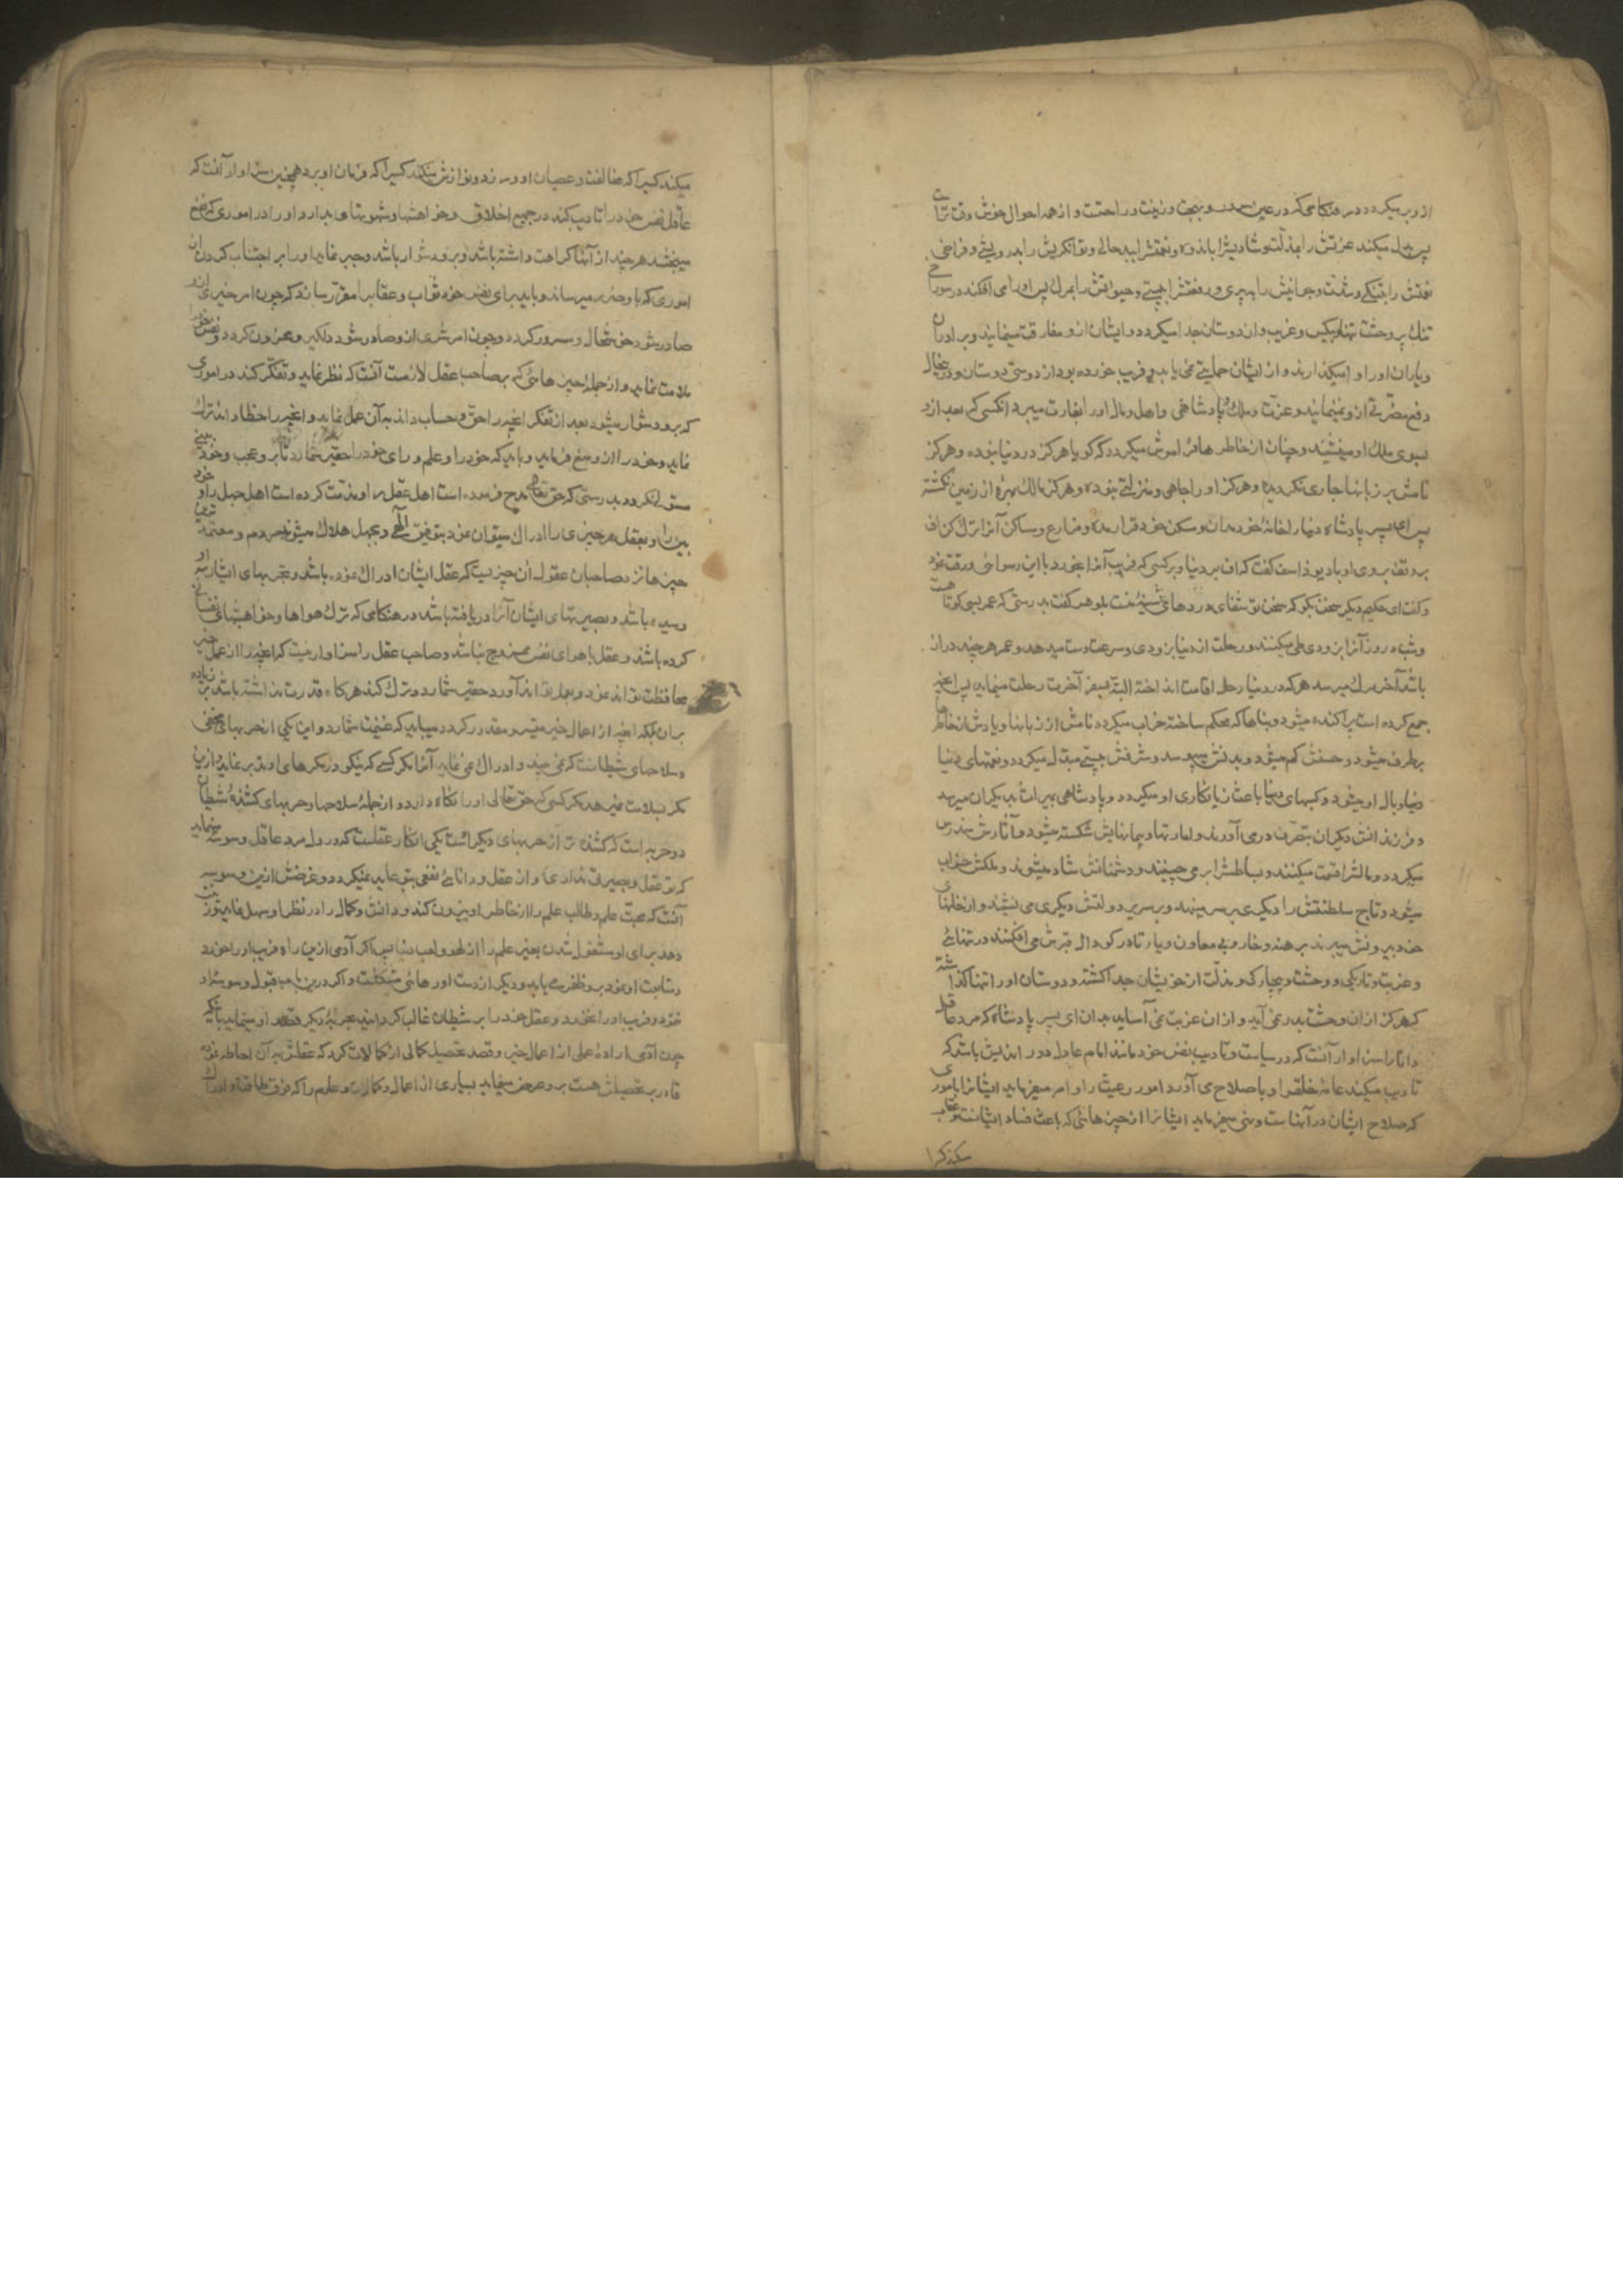 از و بر میکردد در هنکامی که در عین سرور و بهجت و زینت و راحتست و از همه احوال خوش وقت تراست
پس بدل میکند عزتش را بمذلت و شادیش را باندوه و نعمتش را ببدحالی و توانکریش را بدرویشی و فراخی
نعمتش را بتنکی و شدت و جوانیش را به پیری و رفعتش را به پستی و حیواتش را بمرک پس او را می افکند در سوراخ
تنک پر وحشت تنها و بیکس و غریب و از دوستان جدا میکردد و ایشان از و مفارقت مینمایند و برادران
و یاران او را وا میکذارند و از ایشان حمایتی نمی یابد و فریب خورده بود از دوستی دوستان و در آنحال
دفع مضرتی از و نمینمایند و عزت و ملک و پادشاهی و اهل و مال او را بغارت میبرد انکسی که بعد از و
بسوی ملک او مینشیند و چنان از خاطرها فراموش میکردد که کویا هرکز در دنیا نبوده و هرکز
نامش بر زبانها جاری نکردیده و هرکز او را جاهی و منزلتی نبوده و هرکز مالک بهره از زمین نکشته
پس ای پسر پادشاه دنیا را خانهٔ خود مدان و مسکن خود قرار مده و مزارع و مساکن آنرا ترک کن اف
بر و تف بروی او باد یوذاسف کفت که اف بر دنیا و بر کسی که فریب آنرا بخورد با این رسوائی و رقت نمود
و کفت ای حکیم دیکر سخن بکو که سخن تو شفای دردهای سینهٔ منست بلوهر کفت بدرستی که عمر بسی کوتاهست
و شب و روز آنرا بزودی طی میکنند و رحلت از دنیا بزودی و سرعت دست میدهد و عمر هر چند دراز
باشد آخر مرک میرسد و هر که در دنیا رحل اقامت انداخته البته بسفر آخرت رحلت مینماید پس آنچه
جمع کرده است پراکنده میشود و بناها که محکم ساخته خراب میکردد و نامش از زبانها و یادش از خاطرها
برطرف میشود و حسنش کم میشود و بدنش میپوسد و شرفش به پستی مبدل میکردد و نعمتهای دنیا
دنیا وبال او میشود و کسبهای دنیا باعث زیانکاری او میکردد و پادشاهی بمیراث بدیکران میرسد
و فرزندانش دیکران بتصرف در می آورند و امارتها و پیمانهایش شکسته میشود و آثارش مندرس
میکردد و مالش را قسمت میکنند و بساطش را بر می چینند و دشمنانش شاد میشوند و ملکش خراب
میشود و تاج سلطنتش را دیکری بر سر مینهد و بر سریر دولتش دیکری می نشیند و از خانهای
خود بیرونش میبرند برهنه و خار و بی معاون و یار تا در کودال قبرش می افکنند در تنهائی
و غربت و تاریکی و وحشت و بیچارکی و مذلت از خویشان جدا کشته و دوستان او را تنها کذاشته
که هرکز از ان وحشت بدر نمی آید و از ان غربت نمی آساید بدان ای پسر پادشاه که مرد عاقل
دانا را سزاوار آنست که در سیاست و تادیب نفس خود مانند امام عادل دور اندیش باشد که
تادیب میکند عامهٔ خلق را و باصلاح می آورد امور رعیت را و امر میفرماید ایشانرا باموری
که صلاح ایشان در آنهاست و نهی میفرماید ایشانرا از چیزهائی که باعث فساد ایشانست و عقاب
میکند کسی را
میکند کسی را که مخالفت و عصیان او ورزد و نوازش میکند کسی را که فرمان او برد همچنین سزاوار آنست که
عاقل نفس خود را تادیب کند در جمیع اخلاق و خواهشها و شهوتهای بد او و او را در اموری که نفع
میبخشد هر چند از آنها کراهت داشته باشد و برو دشوار باشد و جبر نماید او را بر اجتناب کردن از
اموری که باو ضرر میرساند و باید برای نفس خود ثواب و عقابرا مقرر سازد که چون امر خیری از و
صادر شود خوشحال و مسرور کردد و چون امر شری از و صادر شود دلکیر و محزون کردد و نفس خود را
ملامت نماید و از جمله چیزهائی که بر صاحب عقل لازمست آنست که نظر نماید و تفکر کند در اموری
که برو دشوار میشود بعد از تفکر آنچه را حق و حساب داند به آن عمل نماید و آنچه را خطا داند ترک
نماید و خود را از و منع فرماید و باید که خود را و علم و رای خود را حقیر شمارد تا برو عجب و خودبینی
مستولی نکردد بدرستی که حق تعالی مدح فرموده است اهل عقل را و مذمت کرده است اهل جهل را و خود
بین را و بعقل هر چیزی را ادراک میتوان نمود بتوفیق الهی و بجهل هلاک میشوند مردم و معتمدترین
چیزها نزد صاحبان عقول آن چیزیست که عقل ایشان ادراک نموده باشد و تجربهای ایشان به او
رسیده باشد و بصیرتهای ایشان آنرا دریافته باشد در هنکامی که ترک هواها و خواهشهای نفسانی
کرده باشند و عقل با هوای نفس ممزوج نباشد و صاحب عقل را سزاوار نیست که آنچه را از عمل خیر
محافظت تواند نمود و بعمل تواند آورد حقیر شمارد و ترک کند هر کاه قدرت نداشته باشد بر زیاده
بر ان بلکه آنچه از اعمال خیر میسر و مقدور کردد میباید که غنیمت شمارد و این یکی از حربهای مخفی
و سلاحهای شیطانست که نمی بیند و ادراک نمی نماید آنرا مکر کسی که نیکو در مکرهای او تدبر نماید و از ین
مکر بسلامت نمیرهد مکر کسی که حق تعالی او را نکاه دارد و از جمله سلاحها و حربهای کشندهٔ شیطان
دو حربه است که کشنده تر از حربهای دیکر است یکی انکار عقلست که در دل مرد عاقل وسوسه مینماید
که تو عقل و بصیرتی نداری و از عقل و دانائی نفعی بتو عاید نمیکردد و غرضش ازین وسوسه
آنست که محبت علم و طالب علم را از خاطر او بیرون کند و دانش و کمال را در نظر او سهل نماید و زینت
دهد برای او مشغول شدن بغیر علم را از لهو و لعب دنیا پس اکر آدمی ازین راه فریب او را خورد
و متابعت او نمود برو ظفر می یابد و دیکر از دست او رهائی مشکلست و اکر درین باب قبول وسوسه او
نمود و فریب او را نخورد و عقل خود را بر شیطان غالب کردانید بحربهٔ دیکر قصد او مینماید بانکه
چون آدمی ارادهٔ عملی از اعمال خیر و قصد تحصیل کمالی از کمالات کرد که عقلش بر آن احاطه نموده
قادر بر تحصیلش هست برو عرض مینماید بسیاری از اعمال و کمالات و علوم را که فوق طاقت و ادراک